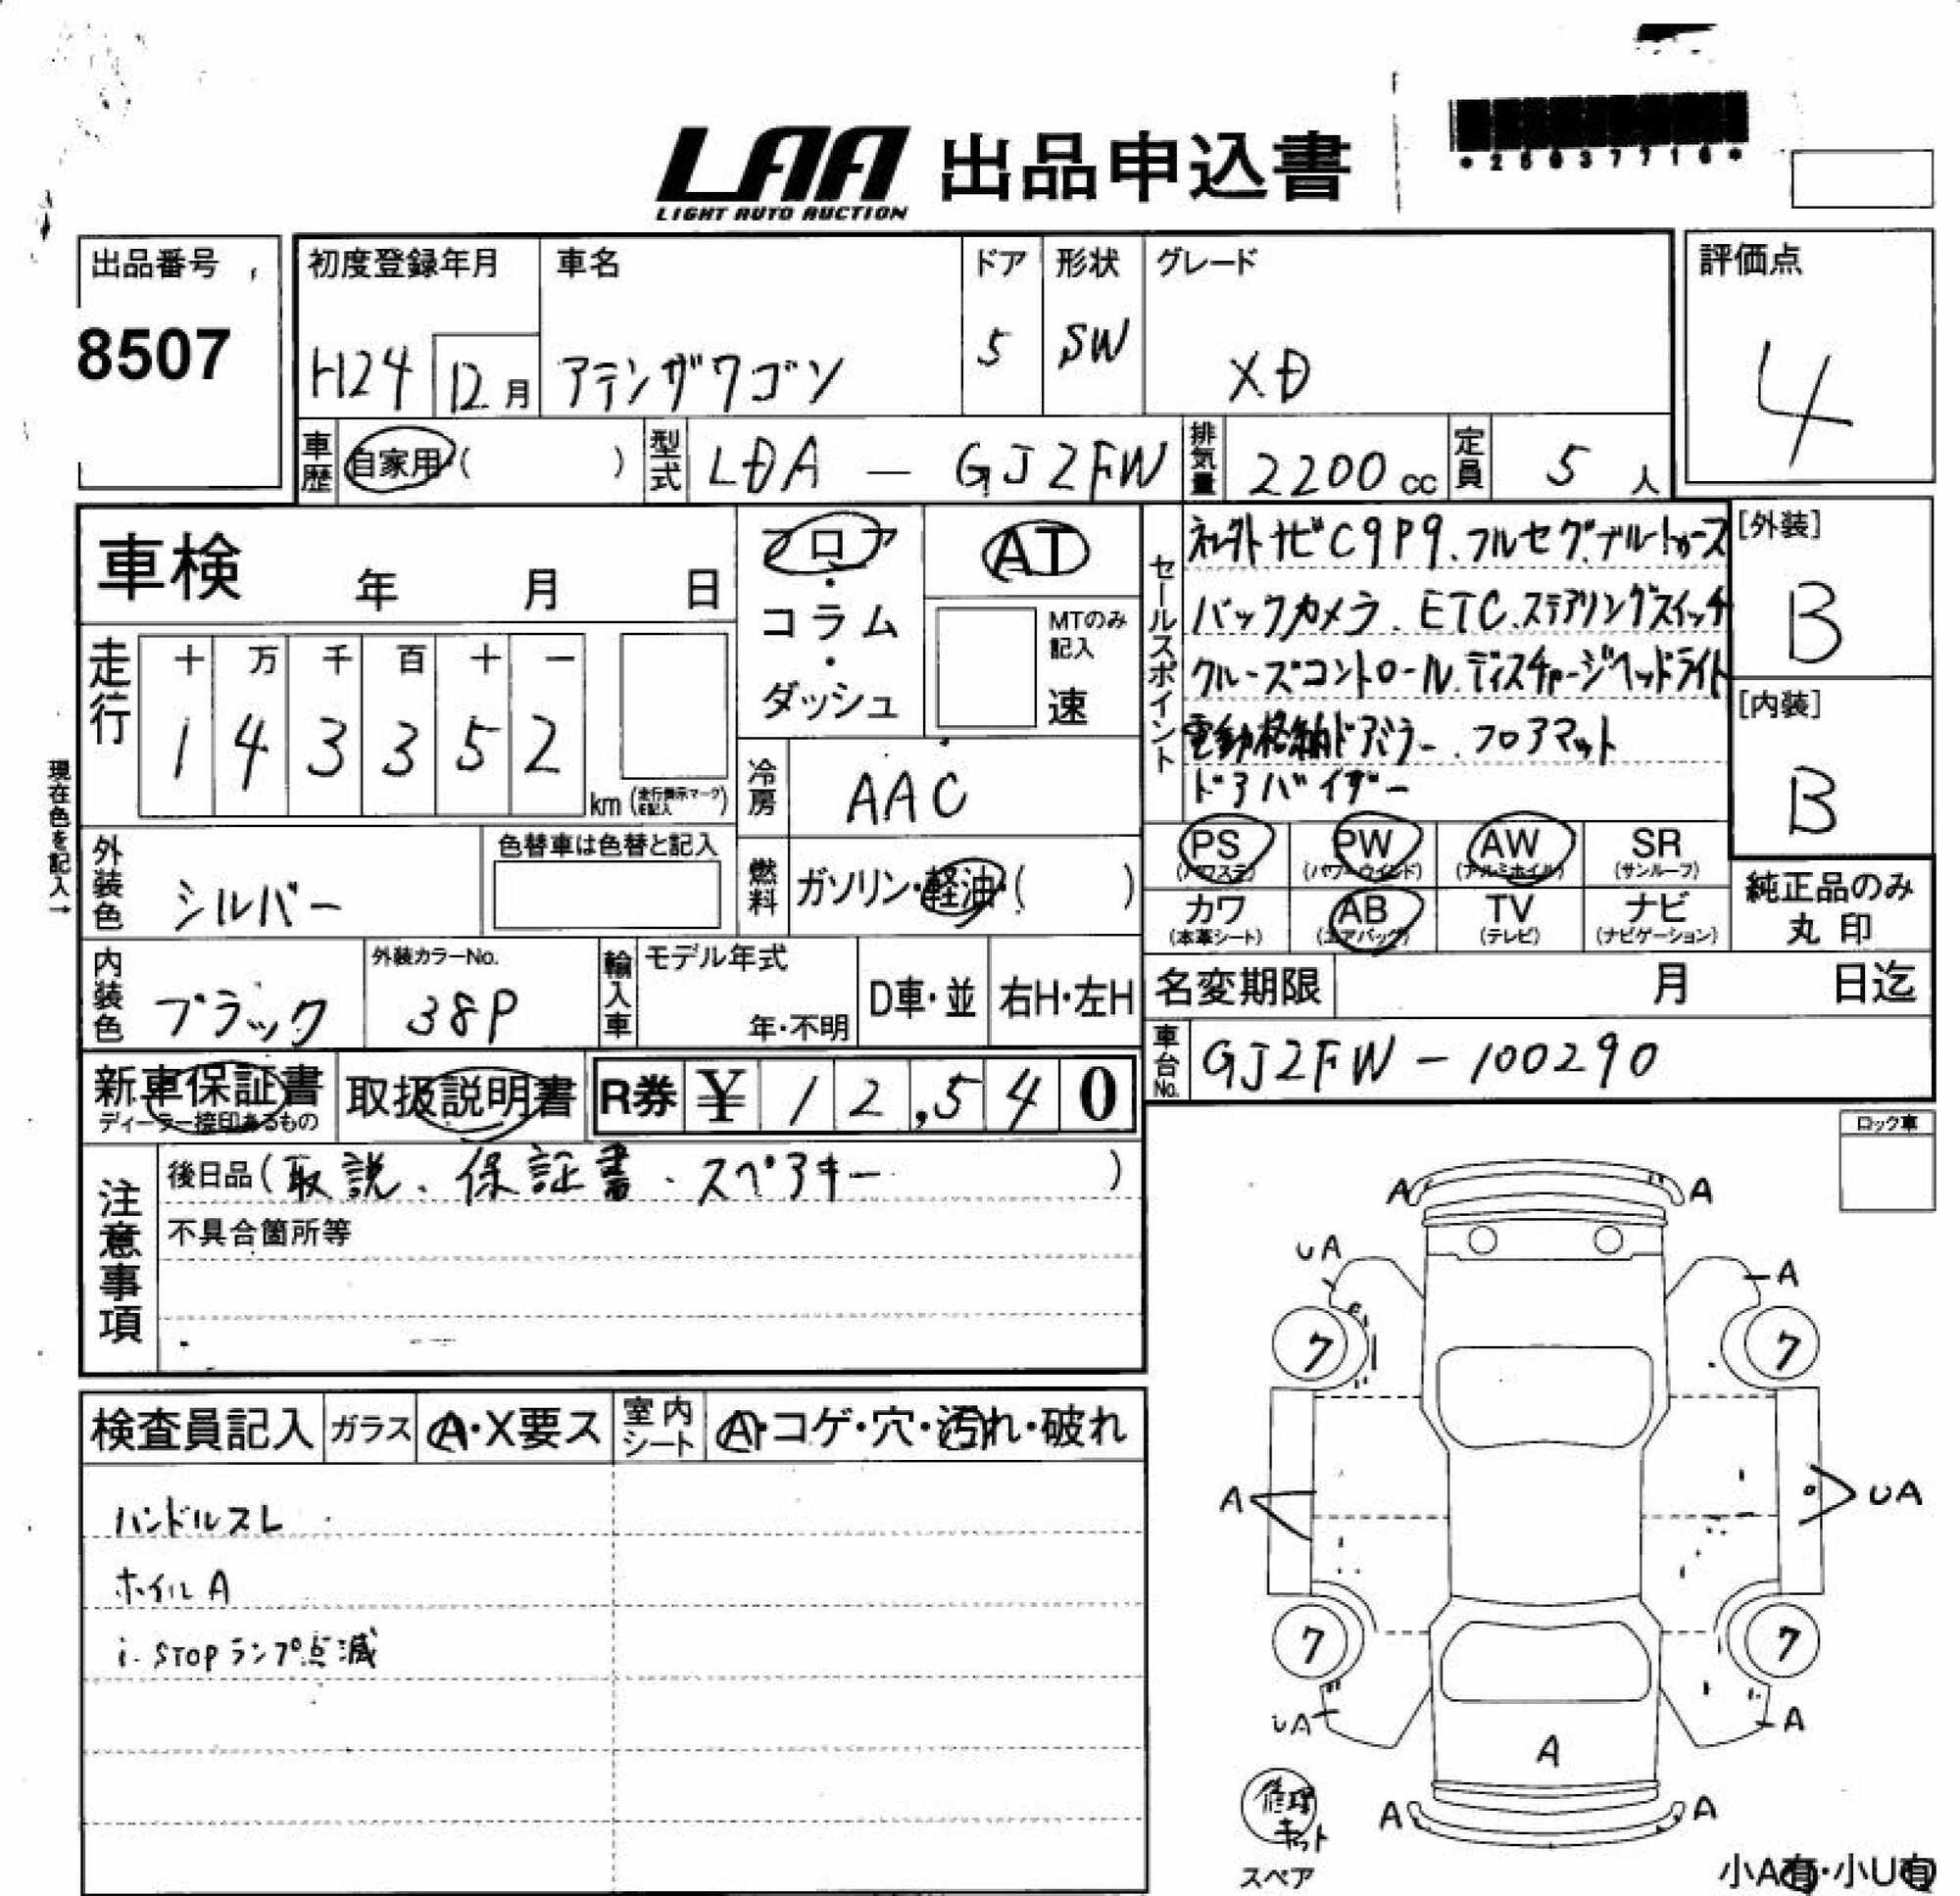 LAA 出品申込書
LIGHT AUTO AUCTION
*25037716*
出品番号
8507
初度登録年月
H24 12月
車名
アテンザワゴン
ドア
5
形状
SW
グレード
XD
評価点
4
車歴 自家用 ( )
型式 LDA - GJ2FW
排気量 2200 cc
定員 5 人
車検 年 月 日
フロア・コラム・ダッシュ
AT
MTのみ記入
速
走行
十 万 千 百 十 一
1 4 3 3 5 2
km (走行表示マーク記入)
冷房 AAC
現在色を記入→
外装色 シルバー
色替車は色替と記入
燃料 ガソリン・軽油・( )
内装色 ブラック
外装カラーNo.
38P
輸入車
モデル年式
年・不明
D車・並
右H・左H
セールスポイント
ナビC9P9.フルセグ.ブルートゥース
バックカメラ.ETC.ステアリングスイッチ
クルーズコントロール.ディスチャージヘッドライト
電動格納ドアミラー.フロアマット
ドアバイザー
[外装]
B
[内装]
B
PS (パワステ)
PW (パワーウインド)
AW (アルミホイル)
SR (サンルーフ)
カワ (本革シート)
AB (エアバッグ)
TV (テレビ)
ナビ (ナビゲーション)
純正品のみ
丸印
名変期限 月 日迄
車台No. GJ2FW-100290
新車保証書
ディーラー捺印あるもの
取扱説明書
R券 ¥ 12,540
注意事項
後日品(取説、保証書、スペアキー)
不具合箇所等
検査員記入
ガラス A・X要ス
室内シート A・コゲ・穴・汚れ・破れ
ハンドルスレ
ホイルA
i-STOPランプ点滅
ロック車
A A
UA A
7 7
A UA
7 7
UA A
A
A A
修理キット
スペア
小A有・小U有